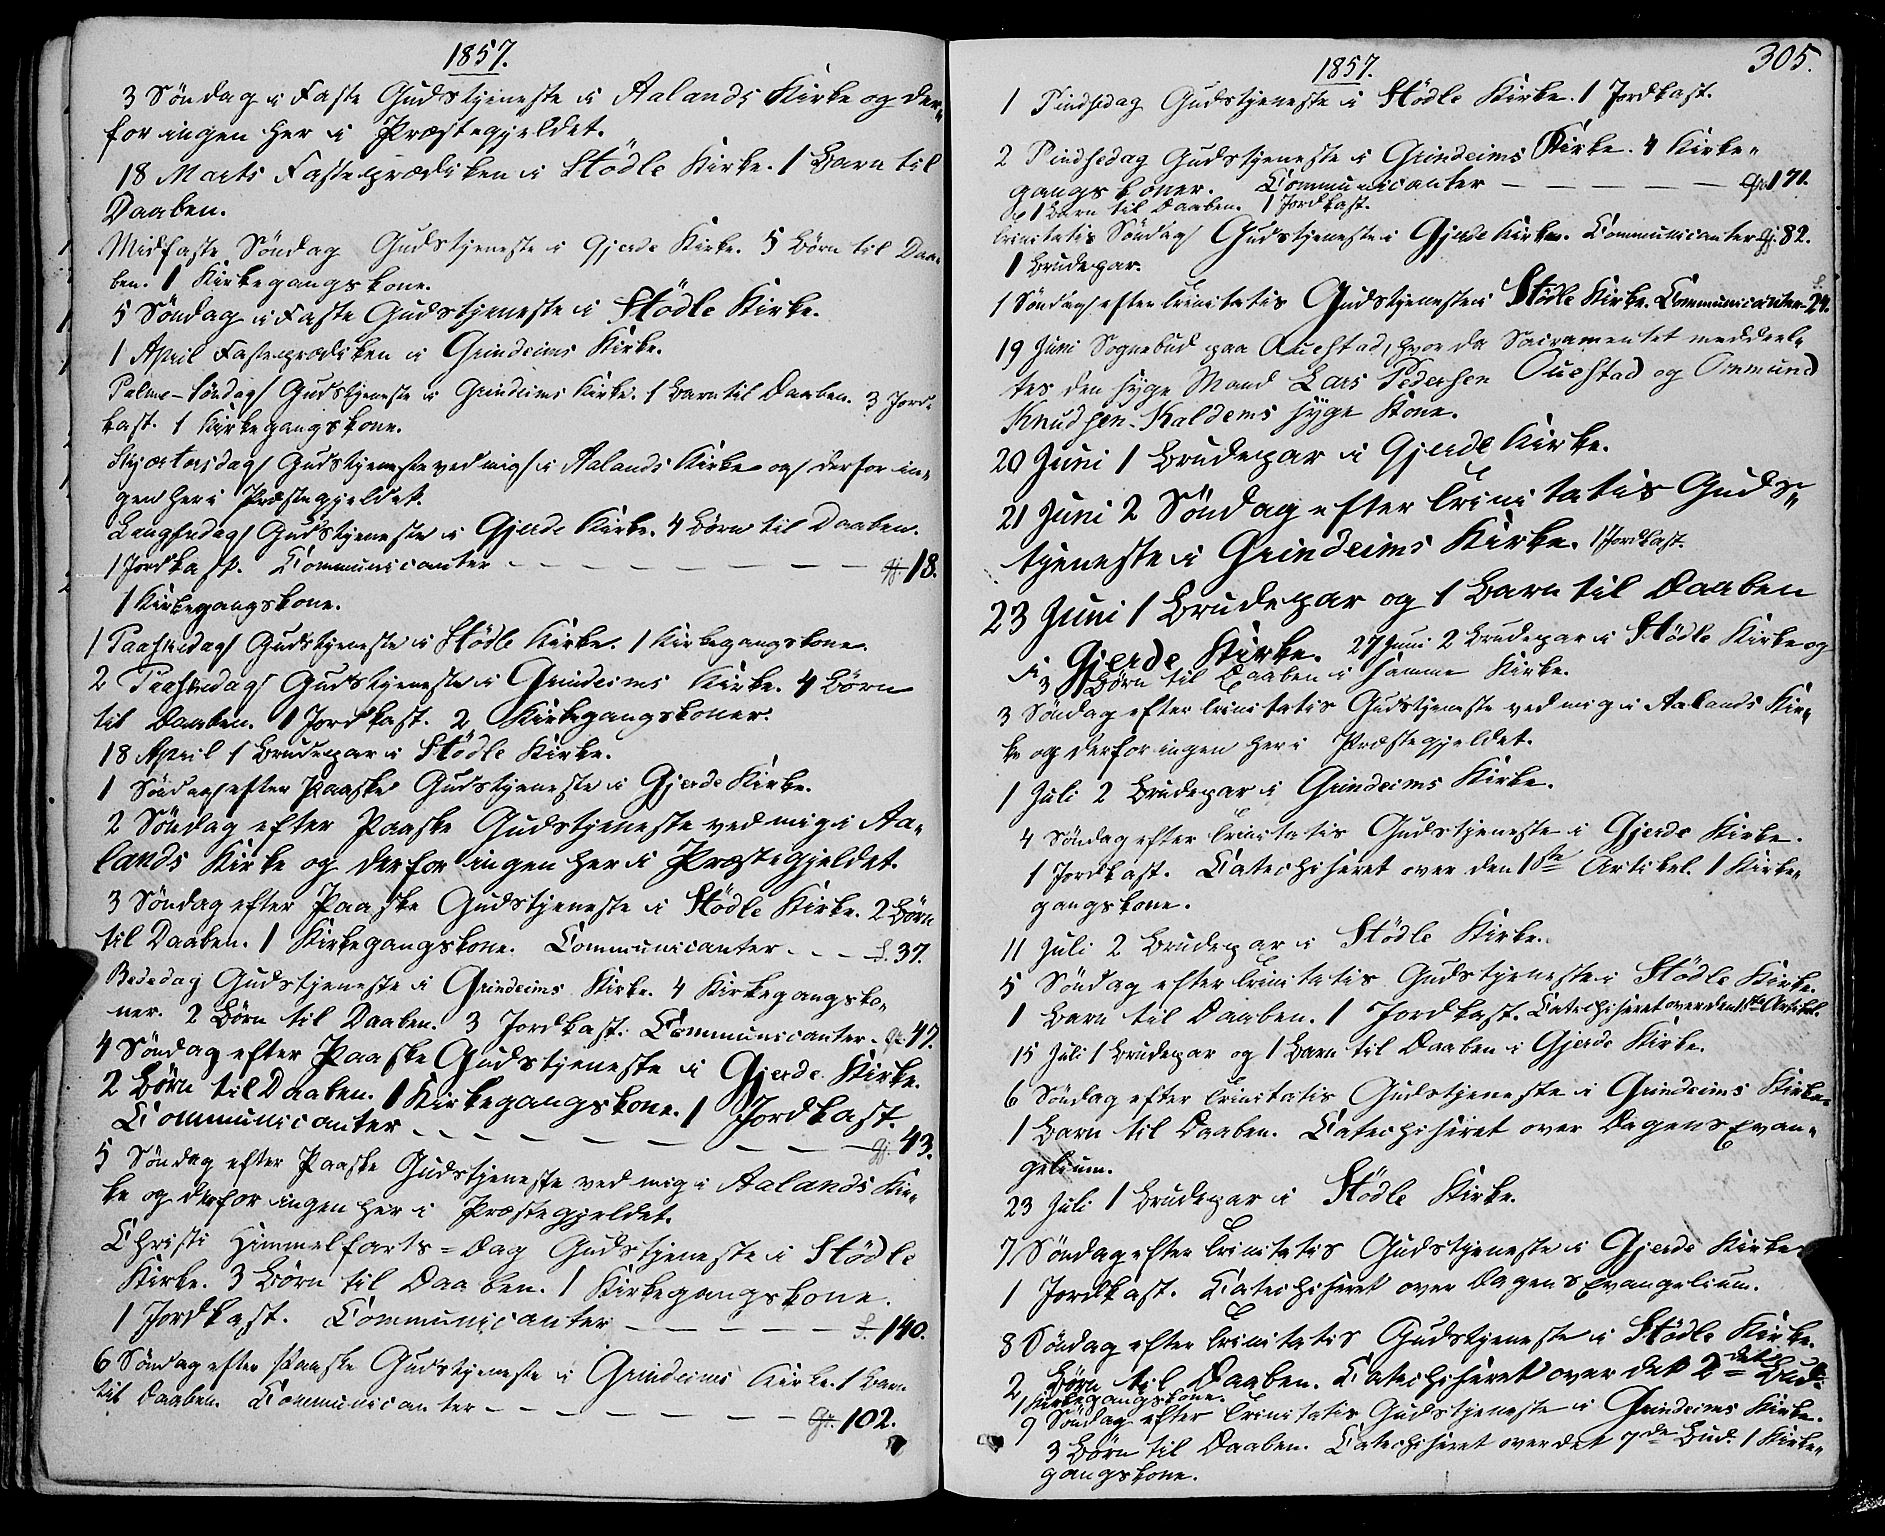 1857.
3 Söndag i Faste Gudstjeneste i Aalands Kirke og der-
for ingen her i Præstegjeldet.
18 Marts Fasteprædiken i Stödle Kirke. 1 Barn til
Daaben.
Midfaste Söndag Gudstjeneste i Gjerde Kirke. 5 Börn til Daa-
ben. 1 Kirkegangskone.
5 Söndag i Faste Gudstjeneste i Stödle Kirke.
1 April Fasteprædiken i Grindeims Kirke.
Palme-Söndag Gudstjeneste i Grindeims Kirke. 1 Barn til Daaben. 3 Jord-
kast. 1 Kirkegangskone.
Skjærtorsdag Gudstjeneste ved mig i Aalands Kirke og derfor in-
gen her i Præstegjeldet.
Langfredag Gudstjeneste i Gjerde Kirke. 4 Börn til Daaben.
1 Jordkast. Communicanter - - - - - - - - Gj. 18.
1 Kirkegangskone.
1 Paaskedag Gudstjeneste i Stödle Kirke. 1 Kirkegangskone.
2 Paaskedag Gudstjeneste i Grindeims Kirke. 4 Börn
til Daaben. 1 Jordkast. 2 Kirkegangskoner.
18 April 1 Brudepar i Stödle Kirke.
1 Söndag efter Paaske Gudstjeneste i Gjerde Kirke.
2 Söndag efter Paaske Gudstjeneste ved mig i Aa-
lands Kirke og derfor ingen her i Præstegjeldet.
3 Söndag efter Paaske Gudstjeneste i Stödle Kirke. 2 Börn
til Daaben. 1 Kirkegangskone. Communicanter - - - S. 37.
Bededag Gudstjeneste i Grindeims Kirke. 4 Kirkegangsko-
ner. 2 Börn til Daaben. 3 Jordkast. Communicanter - Gr. 47.
4 Söndag efter Paaske Gudstjeneste i Gjerde Kirke.
2 Börn til Daaben. 1 Kirkegangskone. 1 Jordkast.
Communicanter - - - - - - - - Gj. 43.
5 Söndag efter Paaske Gudstjeneste ved mig i Aalands Kir-
ke og derfor ingen her i Præstegjeldet.
Christi Himmelfarts-Dag Gudstjeneste i Stödle
Kirke. 3 Börn til Daaben. 1 Kirkegangskone.
1 Jordkast. Communicanter - - - - - - S. 140.
6 Söndag efter Paaske Gudstjeneste i Grindeims Kirke. 1 Barn
til Daaben. Communicanter - - - - - - - - Gr. 102.
305.
1857.
1 Pindsedag Gudstjeneste i Stödle Kirke. 1 Jordkast.
2 Pindsedag Gudstjeneste i Grindeims Kirke. 4 Kirke-
gangskoner. Communicanter - - - - - - Gr. 171.
1 Barn til Daaben. 1 Jordkast.
Trinitatis Söndag Gudstjeneste i Gjerde Kirke. Communicanter Gj. 82.
1 Brudepar.
1 Söndag efter Trinitatis Gudstjeneste i Stödle Kirke. Communicanter S. 24.
19 Juni Sognebud paa Quehstad, hvor da Sacramentet meddeel-
tes den syge Mand Lars Pedersen Quehstad og Omund
Knudsen Kaldems syge Kone.
20 Juni 1 Brudepar i Gjerde Kirke.
21 Juni 2 Söndag efter Trinitatis Guds-
tjeneste i Grindeims Kirke. 1 Jordkast.
23 Juni 1 Brudepar og 1 Barn til Daaben
i Gjerde Kirke. 27 Juni 2 Brudepar i Stödle Kirke og
3 Börn til Daaben i samme Kirke.
3 Söndag efter Trinitatis Gudstjeneste ved mig i Aalands Kir-
ke og derfor ingen her i Præstegjeldet.
1 Juli 2 Brudepar i Grindeims Kirke.
4 Söndag efter Trinitatis Gudstjeneste i Gjerde Kirke.
1 Jordkast. Catechiseret over den 1ste Artikel. 1 Kirke-
gangskone.
11 Juli 2 Brudepar i Stödle Kirke.
5 Söndag efter Trinitatis Gudstjeneste i Stödle Kirke.
1 Barn til Daaben. 1 Jordkast. Catechiseret over den 1ste Artikel.
15 Juli 1 Brudepar og 1 Barn til Daaben i Gjerde Kirke.
6 Söndag efter Trinitatis Gudstjeneste i Grindeims Kirke.
1 Barn til Daaben. Catechiseret over Dagens Evan-
gelium.
23 Juli 1 Brudepar i Stödle Kirke.
7 Söndag efter Trinitatis Gudstjeneste i Gjerde Kirke
1 Jordkast. Catechiseret over Dagens Evangelium.
8 Söndag efter Trinitatis Gudstjeneste i Stödle Kirke.
2 Börn til Daaben. Catechiseret over det 2det Bud.
1 Kirkegangskone.
9 Söndag efter Trinitatis Gudstjeneste i Grindeims Kirke.
3 Börn til Daaben. Catechiseret over det 7de Bud. 1 Kirke-
gangskone.